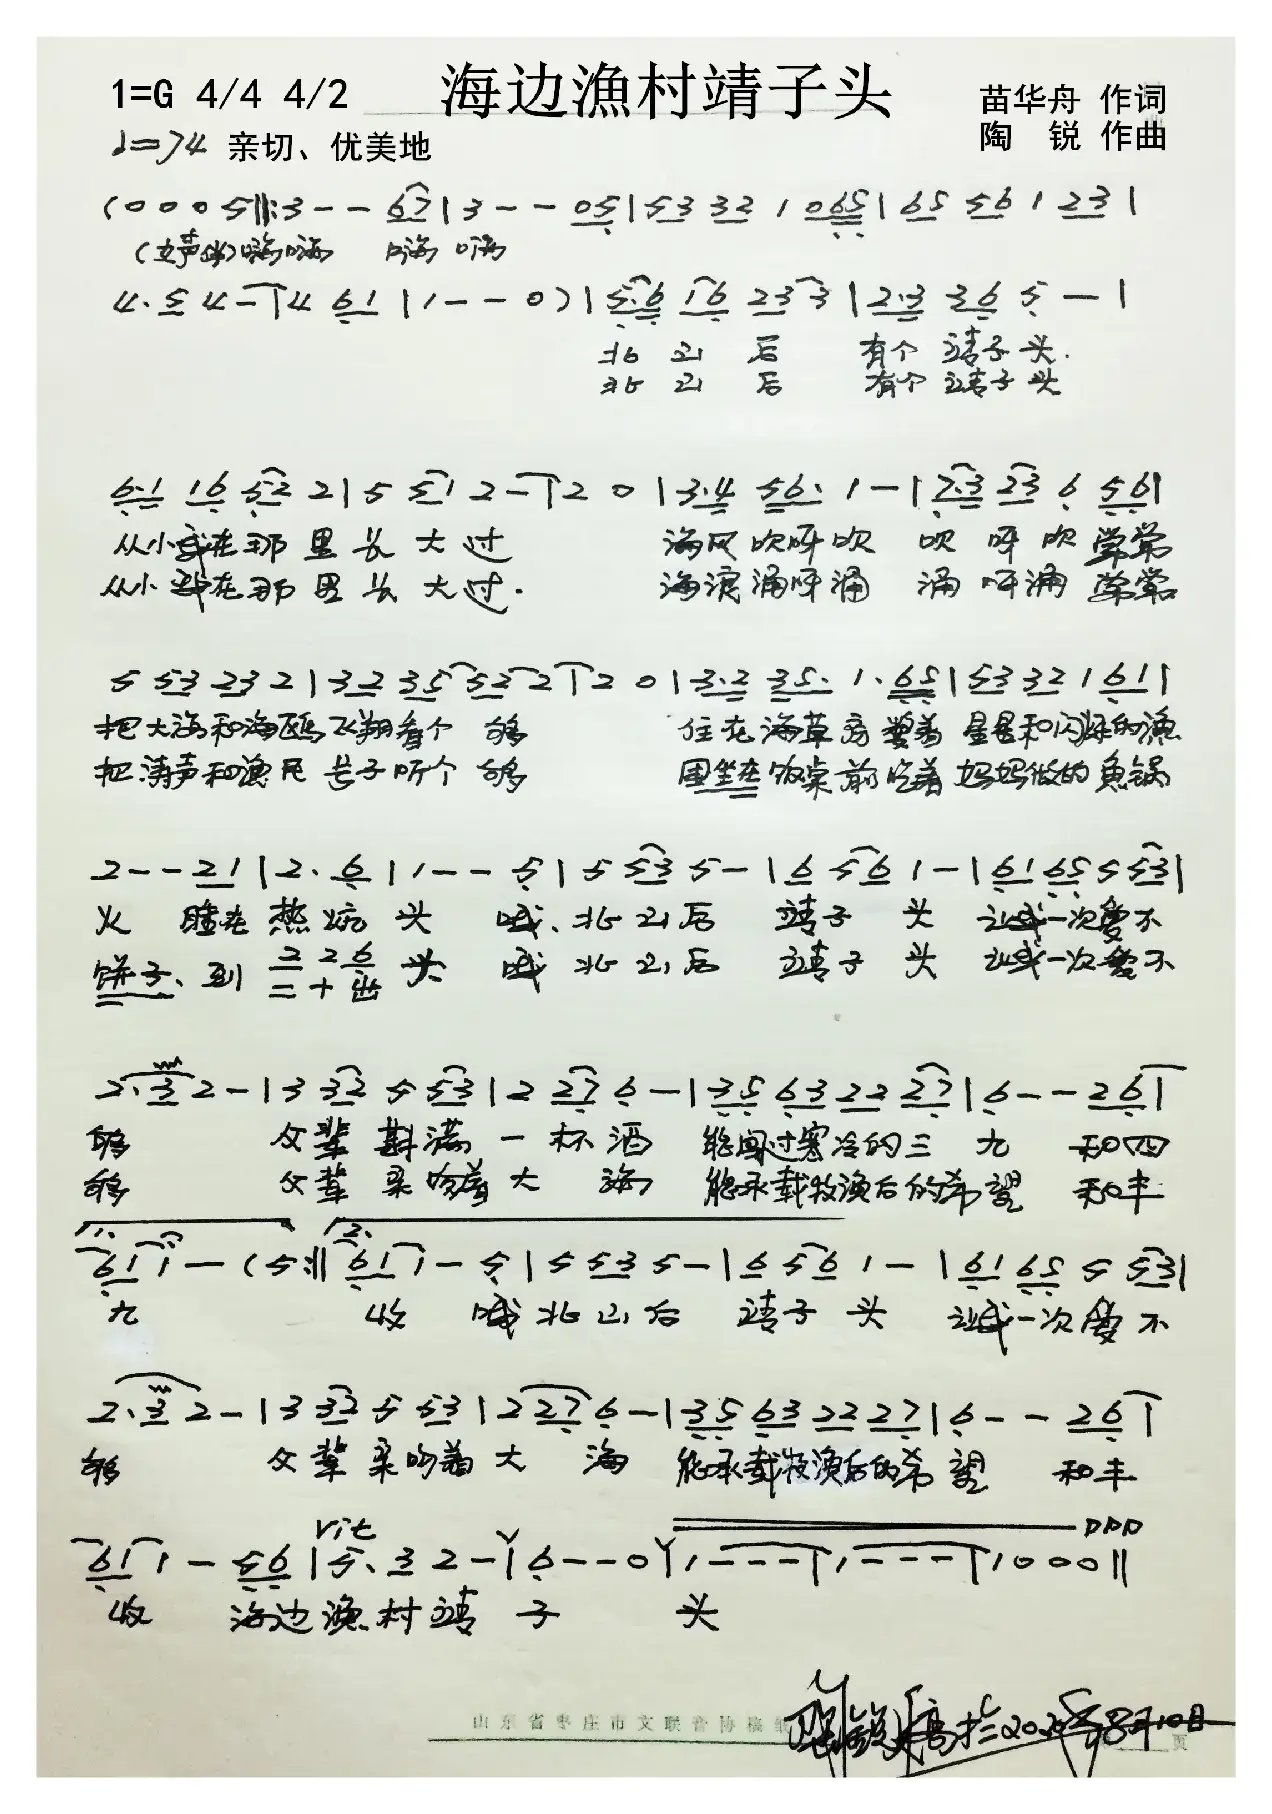 海边渔村靖子头
1=G 4/4 4/2
苗华舟 作词
♩=74 亲切、优美地
陶 锐 作曲
(0 0 0 5‖:3 - - 67|3 - - 05|53 32 1 065|65 56 1 23|
(女声伴)嗨嗨 嗨嗨
4. 5 4 -|4 61|1 - - 0)|5.6 16 23 3|2.3 36 5 -|
北山后 有个靖子头.
北山后 有个靖子头
6.1 16 52 2|5 51 2 -|2 0|3.4 56. 1 -|7.3 23 6 56|
从小我在那里长大过 海风吹呀吹 吹呀吹 常常
从小我在那里长大过. 海浪涌呀涌 涌呀涌 常常
5 53 23 2|32 35 52 2|2 0|3.2 35. 1. 65|53 32 1 61|
把大海和海鸥飞翔看个够 住在海草房 数着星星和闪烁的渔
把涛声和渔民号子听个够 围坐在饭桌前吃着妈妈做的鱼锅
2 - - 21|2. 6|1 - - 5|5 53 5 -|6 56 1 -|61 65 5 53|
火 睡在热炕头 哦、北山后 靖子头 让我一次爱不
饼子、到 2 2 6 头 哦 北山后 靖子头 让我一次爱不
二十出
2. 3 2 -|3 32 5 53|2 27 6 -|35 63 22 27|6 - - 26|
够 父辈斟满一杯酒 能闯过寒冷的三九 和四
够 父辈亲吻着大海 能承载牧渔后的希望 和丰
1. 2.
61 1 - (5:‖61 1 - 5|5 53 5 -|6 56 1 -|61 65 5 53|
九 收 哦 北山后 靖子头 让我一次爱不
2. 3 2 -|3 32 5 53|2 27 6 -|35 63 22 27|6 - - 26|
够 父辈亲吻着大海 能承载牧渔后的希望 和丰
rit PPP
61 1 - 56|5. 3 2 -|6 - - 0|1 - - -|1 - - -|1 0 0 0‖
收 海边渔村靖子 头
山东省枣庄市文联音协稿纸
陶锐 稿于2020年8月10日
页